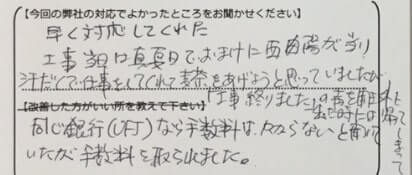 【今回の弊社の対応でよかったところをお聞かせください】
早く対応してくれた
工事当日は真夏日でおまけに西陽が当り
汗だくで仕事をしてくれて茶をあげようと思っていましたが
「工事終りました」の声を聞き
出た時には帰ってしまって
【改善した方がいい所を教えて下さい】
同じ銀行(UFJ)なら手数料はかからないと聞いて
いたが手数料を取られました。